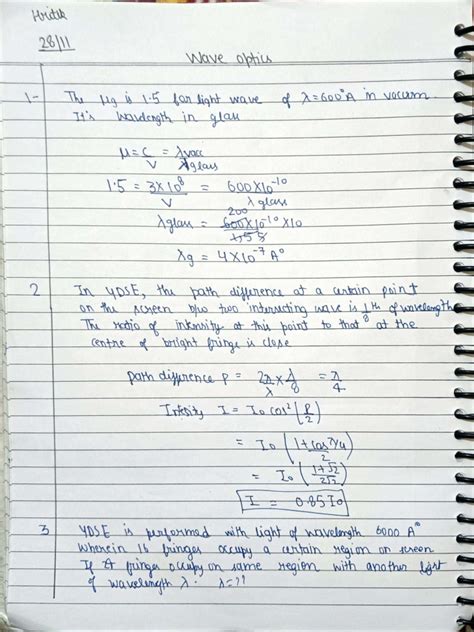 Hritik
28/11
Wave optics
1- The μg is 1.5 for light wave of λ=600°A in vacuum
It's wavelength in glass
μ = C/V = λvacc/λglass
1.5 = 3×10^8/V = 600×10^-10/λglass
200
λglass = 600×10^-10×10/1.5 5
λg = 4×10^-7 A°
2 In YDSE, the path difference at a certain point
on the screen b/w two interacting wave is 1/8 th of wavelength
The ratio of intensity at this point to that at the
centre of bright fringe is close
path difference P = 2π/λ × λ/8 = π/4
Intesity I = I0 cos²(P/2)
= I0 (1+cos π/4 / 2)
= I0 (1+√2 / 2√2)
I = 0.85 I0
3 YDSE is performed with light of wavelength 6000 A°
wherein 16 fringes occupy a certain region on screen
If fringes occupy on same region with another light
of wavelength λ. λ=??